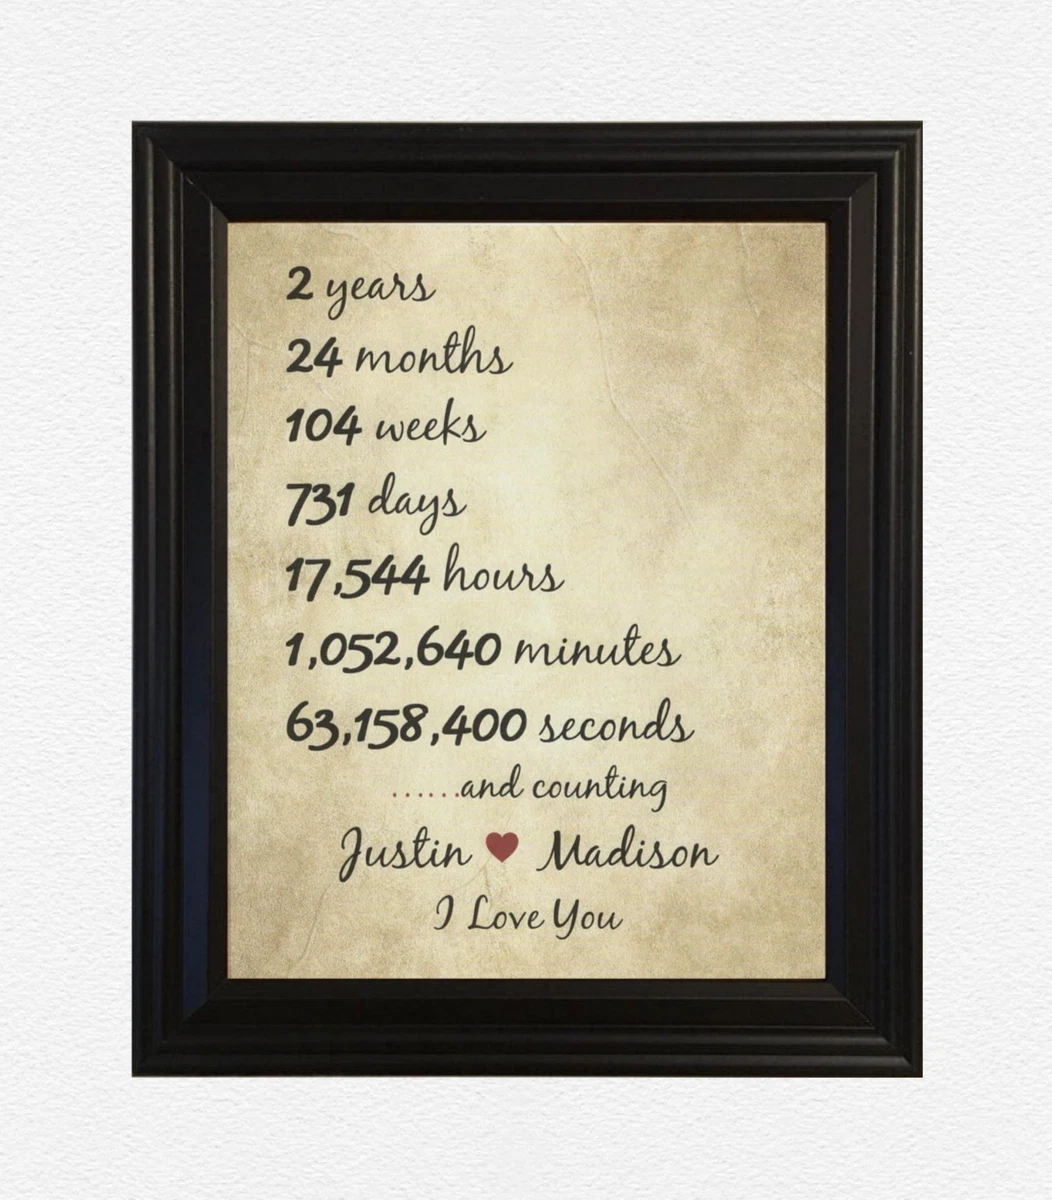 2 years
24 months
104 weeks
731 days
17,544 hours
1,052,640 minutes
63,158,400 seconds
......and counting
Justin ♥ Madison
I Love You